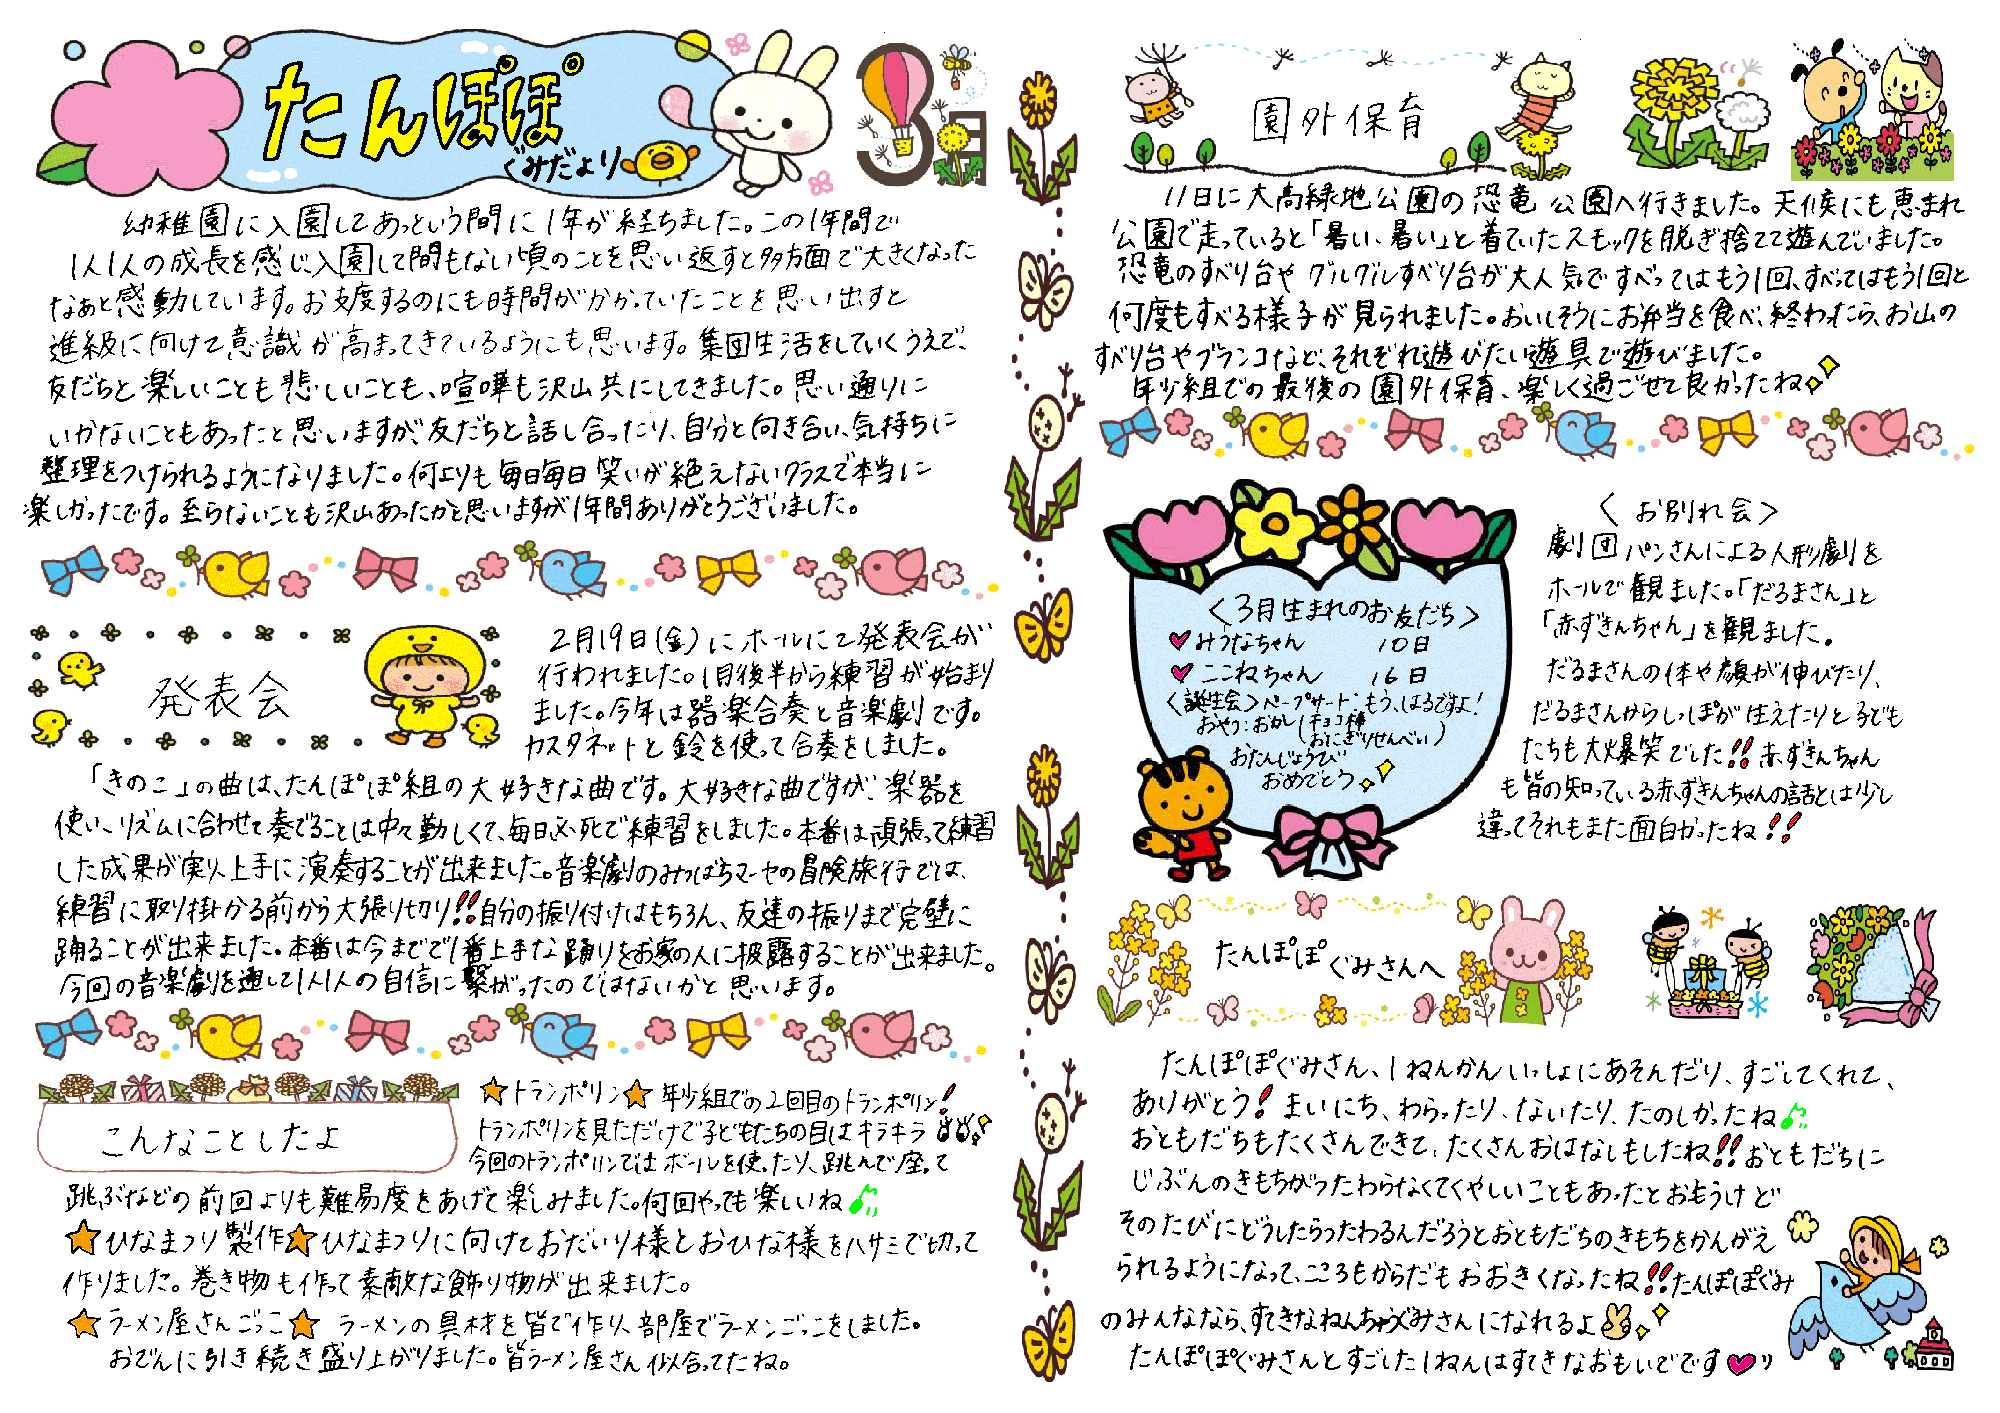 たんぽぽ
ぐみだより
3月
幼稚園に入園してあっという間に1年が経ちました。この1年間で
1人1人の成長を感じ入園して間もない頃のことを思い返すと多方面で大きくなった
なぁと感動しています。お支度するのにも時間がかかっていたことを思い出すと
進級に向けて意識が高まってきているようにも思います。集団生活をしていくうえで、
友だちと楽しいことも悲しいことも、喧嘩も沢山共にしてきました。思い通りに
いかないこともあったと思いますが、友だちと話し合ったり、自分と向き合い、気持ちに
整理をつけられるようになりました。何よりも毎日毎日笑いが絶えないクラスで本当に
楽しかったです。至らないことも沢山あったかと思いますが1年間ありがとうございました。
発表会
2月19日(金)にホールにて発表会が
行われました。1月後半から練習が始まり
ました。今年は器楽合奏と音楽劇です。
カスタネットと鈴を使って合奏をしました。
「きのこ」の曲は、たんぽぽ組の大好きな曲です。大好きな曲ですが、楽器を
使い、リズムに合わせて奏でることは中々難しくて、毎日必死で練習をしました。本番は頑張って練習
した成果が実り上手に演奏することが出来ました。音楽劇のみつばちマーセの冒険旅行では、
練習に取り掛かる前から大張り切り!!自分の振り付けはもちろん、友達の振りまで完璧に
踊ることが出来ました。本番は今までで1番上手な踊りをお家の人に披露することが出来ました。
今回の音楽劇を通して1人1人の自信に繋がったのではないかと思います。
こんなことしたよ
★トランポリン★ 年少組での2回目のトランポリン!
トランポリンを見ただけで子どもたちの目はキラキラ
今回のトランポリンではボールを使ったり、跳んで座って
跳ぶなどの前回よりも難易度をあげて楽しみました。何回やっても楽しいね♪
★ひなまつり製作★ひなまつりに向けておだいり様とおひな様をハサミで切って
作りました。巻き物も作って素敵な飾り物が出来ました。
★ラーメン屋さんごっこ★ ラーメンの具材を皆で作り、部屋でラーメンごっこをしました。
おでんに引き続き盛り上がりました。皆ラーメン屋さん似合ってたね。
園外保育
11日に大高緑地公園の恐竜公園へ行きました。天候にも恵まれ
公園で走っていると「暑い、暑い」と着ていたスモックを脱ぎ捨てて遊んでいました。
恐竜のすべり台やグルグルすべり台が大人気ですべってはもう1回、すべってはもう1回と
何度もすべる様子が見られました。おいしそうにお弁当を食べ、終わったら、お山の
すべり台やブランコなど、それぞれ遊びたい遊具で遊びました。
年少組での最後の園外保育、楽しく過ごせて良かったね
<3月生まれのお友だち>
♥みうなちゃん 10日
♥ここねちゃん 16日
<誕生会>ペープサート:もう、はるですよ!
おやつ:おかし(チョコ棒
おにぎりせんべい)
おたんじょうび
おめでとう
<お別れ会>
劇団パンさんによる人形劇を
ホールで観ました。「だるまさん」と
「赤ずきんちゃん」を観ました。
だるまさんの体や顔が伸びたり、
だるまさんからしっぽが生えたりと子ども
たちも大爆笑でした!!赤ずきんちゃん
も皆の知っている赤ずきんちゃんの話とは少し
違ってそれもまた面白かったね!!
たんぽぽぐみさんへ
たんぽぽぐみさん、1ねんかんいっしょにあそんだり、すごしてくれて、
ありがとう!まいにち、わらったり、ないたり、たのしかったね♪
おともだちもたくさんできて、たくさんおはなしもしたね!!おともだちに
じぶんのきもちがつたわらなくてくやしいこともあったとおもうけど
そのたびにどうしたらつたわるんだろうとおともだちのきもちをかんがえ
られるようになって、こころもからだもおおきくなったね!!たんぽぽぐみ
のみんななら、すてきなねんちゅうぐみさんになれるよ
たんぽぽぐみさんとすごした1ねんはすてきなおもいでです♥